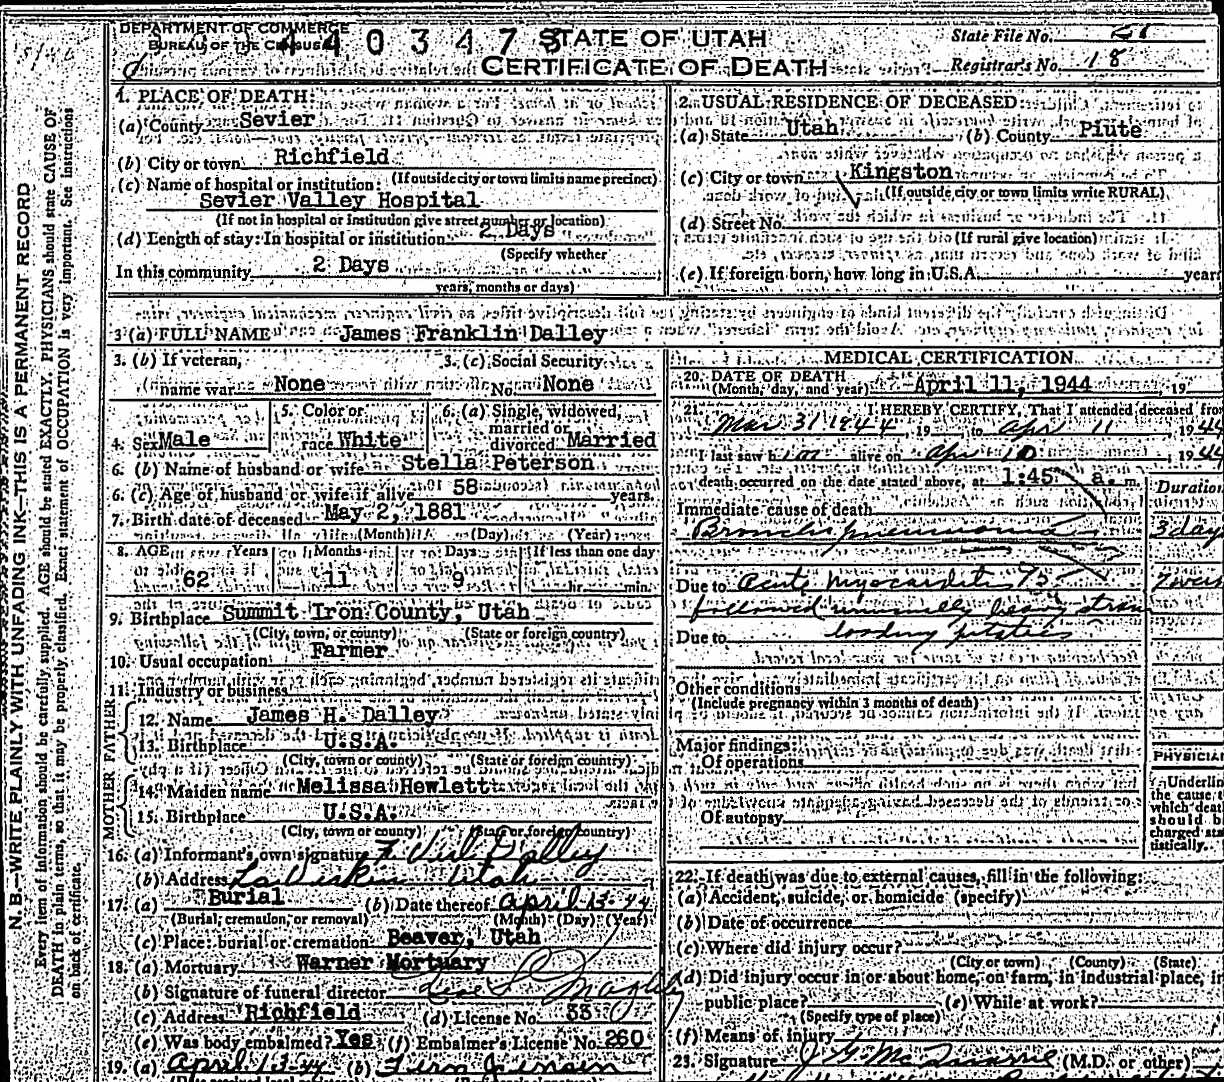 DEPARTMENT OF COMMERCE
BUREAU OF THE CENSUS
STATE OF UTAH
CERTIFICATE OF DEATH
State File No.
Registrar's No. 18
N. B.—WRITE PLAINLY WITH UNFADING INK—THIS IS A PERMANENT RECORD
Every item of information should be carefully supplied. AGE should be stated EXACTLY. PHYSICIANS should state CAUSE OF
DEATH in plain terms, so that it may be properly classified. Exact statement of OCCUPATION is very important. See instructions
on back of certificate.
1. PLACE OF DEATH:
(a) County Sevier
(b) City or town Richfield
(If outside city or town limits name precinct)
(c) Name of hospital or institution:
Sevier Valley Hospital
(If not in hospital or institution give street number or location)
(d) Length of stay: In hospital or institution 2 Days
(Specify whether
In this community 2 Days
years, months or days)
2. USUAL RESIDENCE OF DECEASED
(a) State Utah (b) County Piute
(c) City or town Kingston
(If outside city or town limits write RURAL)
(d) Street No.
(If rural give location)
(e) If foreign born, how long in U.S.A. years
3 (a) FULL NAME James Franklin Dalley
3. (b) If veteran, 3. (c) Social Security
name war None No. None
4. Sex Male 5. Color or race White 6. (a) Single, widowed, married or divorced Married
6. (b) Name of husband or wife Stella Peterson
6. (c) Age of husband or wife if alive 58 years.
7. Birth date of deceased May 2, 1881
(Month) (Day) (Year)
8. AGE Years Months Days If less than one day
62 11 9 hr. min.
9. Birthplace Summit Iron County, Utah
(City, town, or county) (State or foreign country)
10. Usual occupation Farmer
11. Industry or business
FATHER
12. Name James H. Dalley
13. Birthplace U.S.A.
(City, town or county) (State or foreign country)
MOTHER
14. Maiden name Melissa Hewlett
15. Birthplace U.S.A.
(City, town or county) (State or foreign country)
16. (a) Informant's own signature F Verl Dalley
(b) Address LaVerkin Utah
17. (a) Burial (b) Date thereof April 13-44
(Burial, cremation, or removal) (Month) (Day) (Year)
(c) Place: burial or cremation Beaver, Utah
18. (a) Mortuary Warner Mortuary
(b) Signature of funeral director
(c) Address Richfield (d) License No. 33
(e) Was body embalmed? Yes (f) Embalmer's License No. 260
19. (a) April 13-44 (b) Fern Jensen
MEDICAL CERTIFICATION
20. DATE OF DEATH
(Month, day, and year) April 11, 1944, 19
21. I HEREBY CERTIFY, That I attended deceased from
Mar 31 1944, 19 to Apr 11, 1944
I last saw him alive on Apr 10, 1944
death occurred on the date stated above, at 1:45 a. m.
Duration
Immediate cause of death
Bronchopneumonia 3 days
Due to Acute myocarditis
followed unusually heavy strain
Due to loading potatoes
Other conditions
(Include pregnancy within 3 months of death)
Major findings:
Of operations
Of autopsy
PHYSICIAN
Underline
the cause t
which deat
should b
charged sta
tistically.
22. If death was due to external causes, fill in the following:
(a) Accident, suicide, or homicide (specify)
(b) Date of occurrence
(c) Where did injury occur?
(City or town) (County) (State)
(d) Did injury occur in or about home, on farm, in industrial place, in
public place? (e) While at work?
(Specify type of place)
(f) Means of injury
23. Signature J G McQuarrie (M.D. or other)